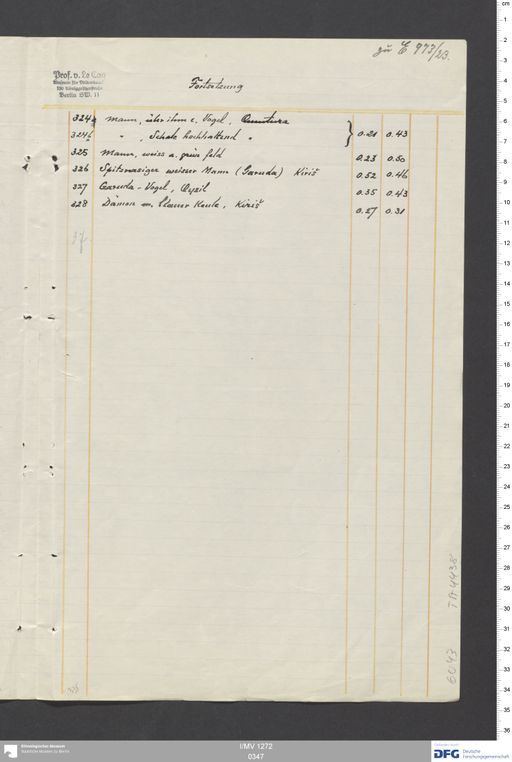 zu E 973/23.
Prof. v. Le Coq
Museum für Völkerkunde
120 Königgrätzerstraße
Berlin SW. 11
Fortsetzung
324a Mann, über ihm e. Vogel. Qumtura
324b " , Schale hochhaltend " } 0.21 0.43
325 Mann, weiss a. grün feld 0.23 0.50
326 Spitznasiger weisser Mann (Garuda) Kiriš 0.52 0.46
327 Garuda-Vogel, Qyzil 0.35 0.43
328 Dämon m. blauer Keule, Kiriš 0.27 0.31
TA 4438
6043
Ethnologisches Museum
Staatliche Museen zu Berlin
I/MV 1272
0347
DFG Deutsche
Forschungsgemeinschaft
cm
1
2
3
4
5
6
7
8
9
10
11
12
13
14
15
16
17
18
19
20
21
22
23
24
25
26
27
28
29
30
31
32
33
34
35
36